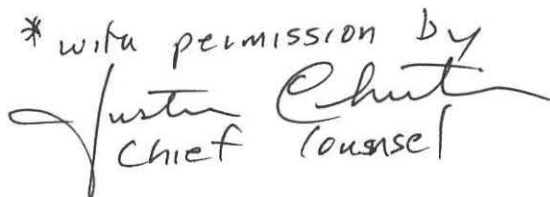 * with permission by
Justin
Chief Counsel